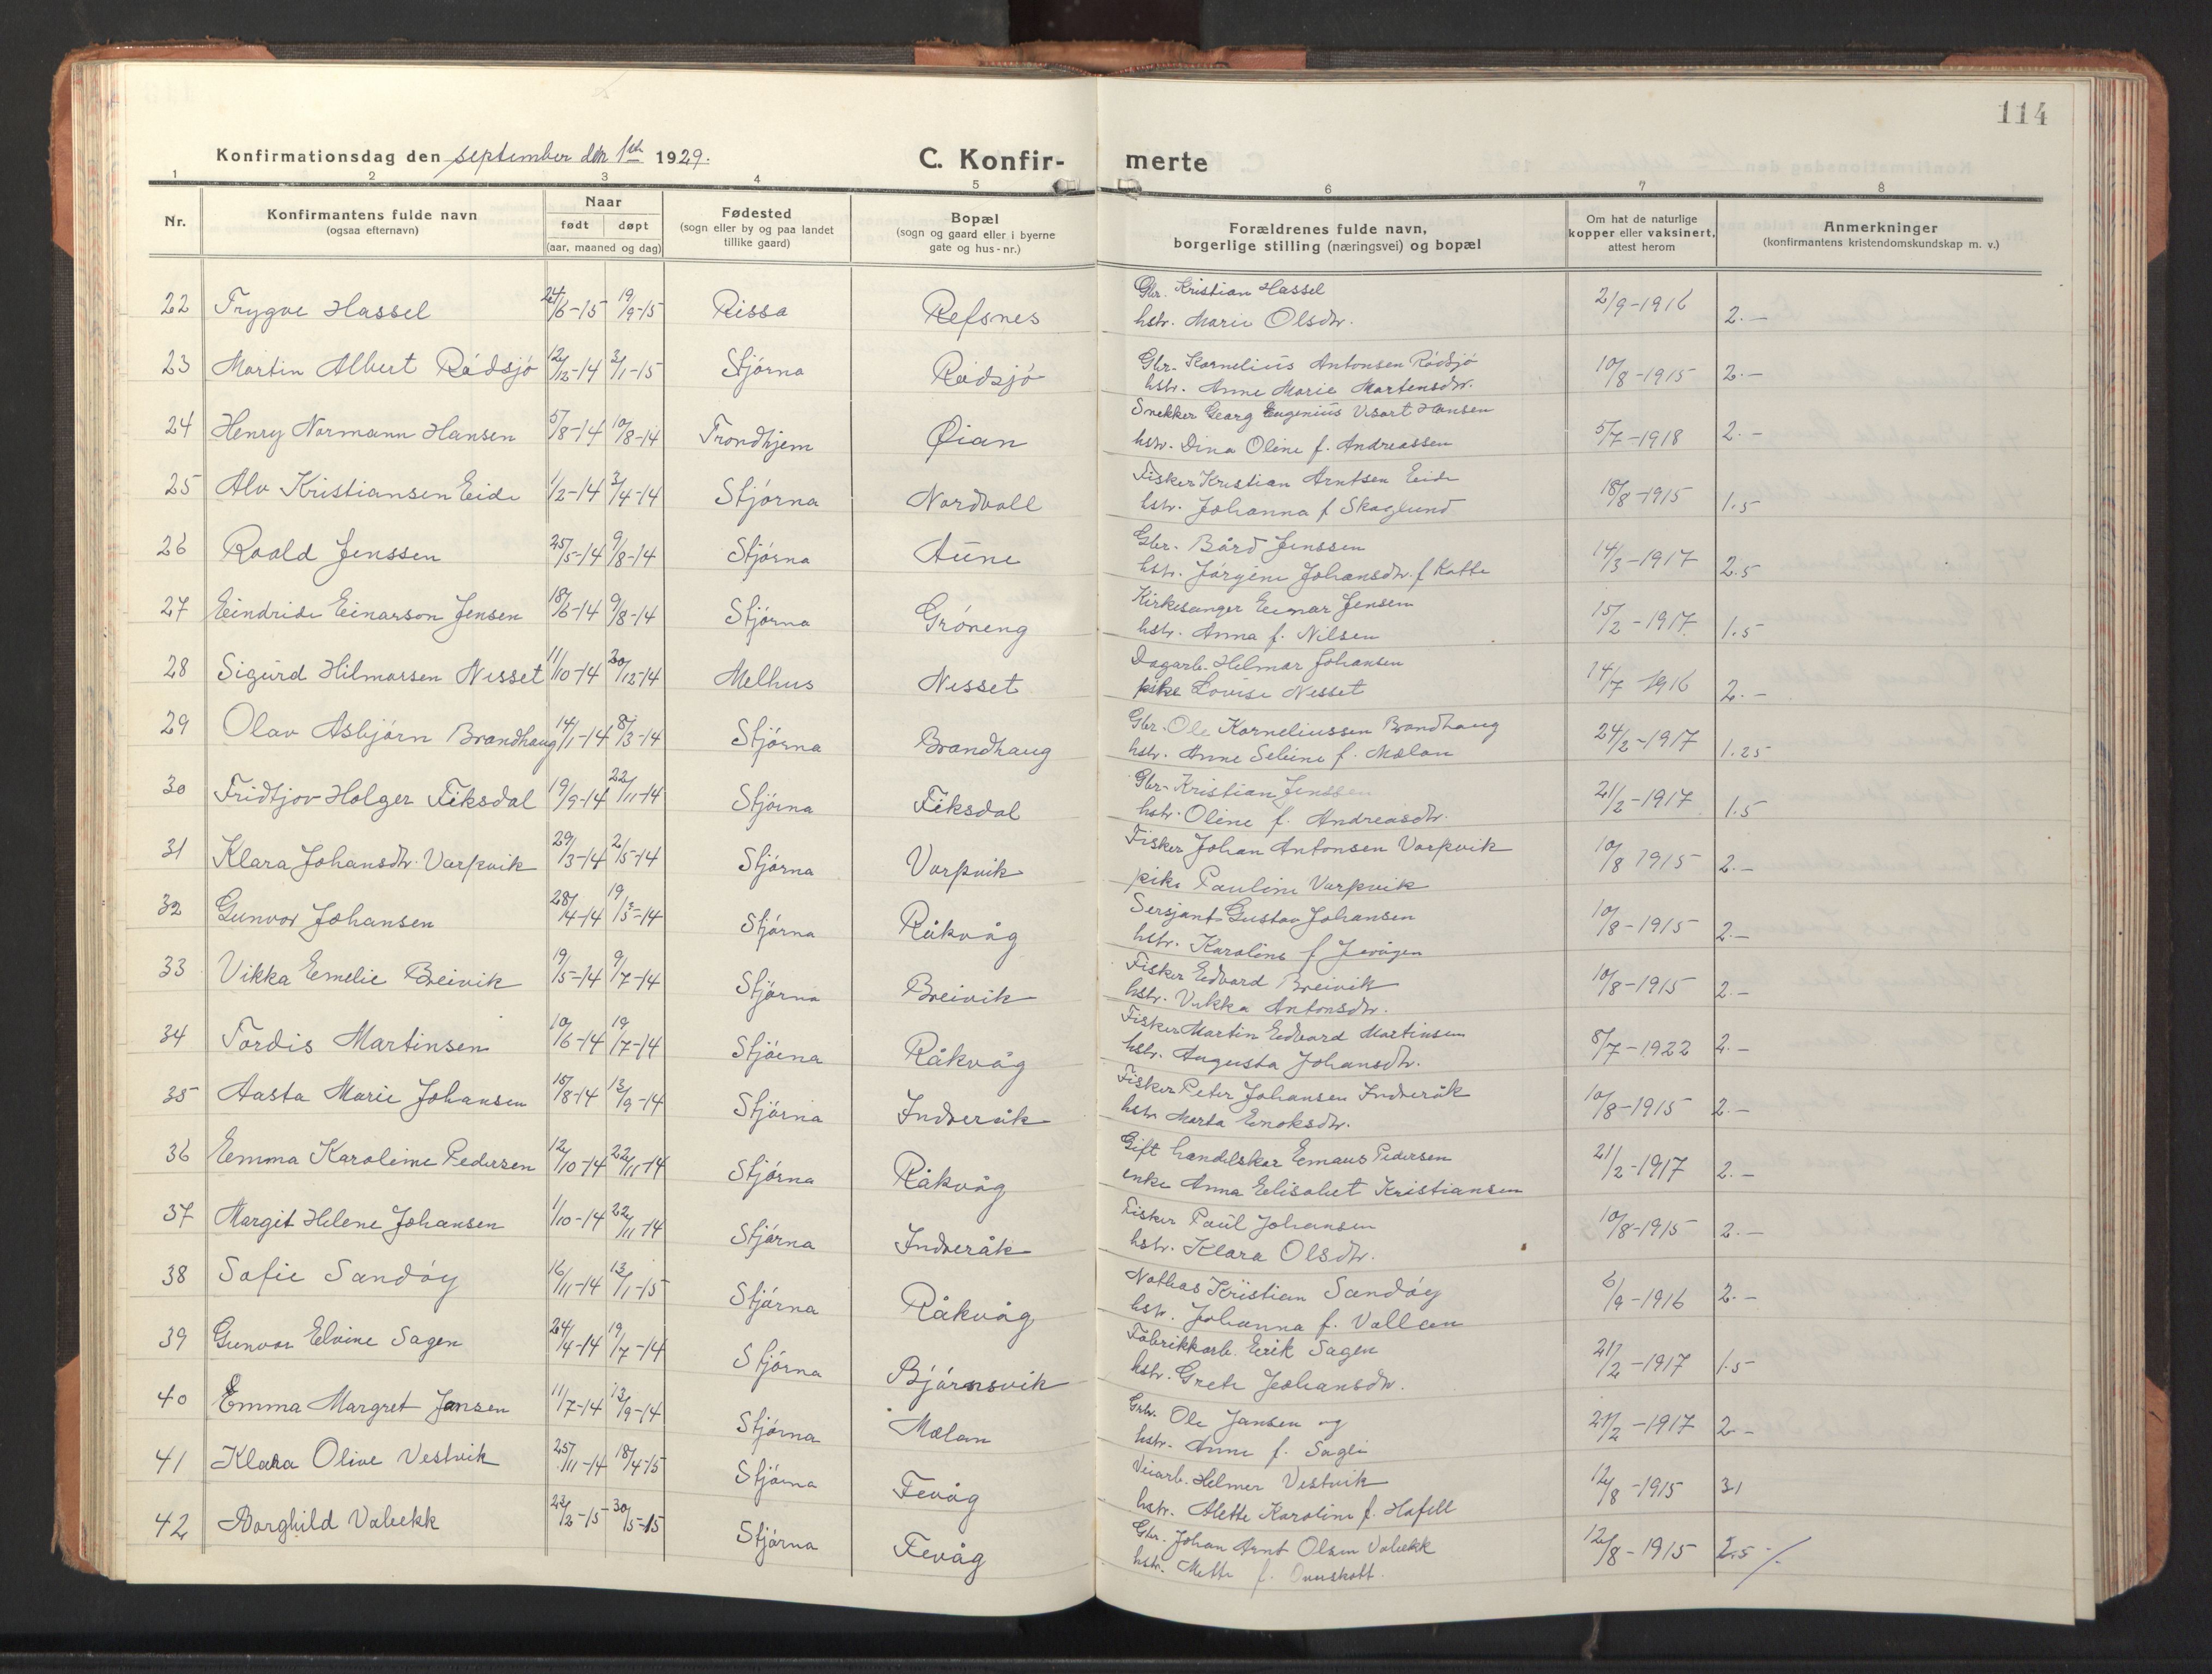 114
Konfirmationsdag den september den 1ste 1929.
C. Konfir- merte
1 2 3 4 5 6 7 8
Nr.
Konfirmantens fulde navn
(ogsaa efternavn)
Naar
født døpt
(aar, maaned og dag)
Fødested
(sogn eller by og paa landet
tillike gaard)
Bopæl
(sogn og gaard eller i byerne
gate og hus-nr.)
Forældrenes fulde navn,
borgerlige stilling (næringsvei) og bopæl
Om hat de naturlige
kopper eller vaksinert,
attest herom
Anmerkninger
(konfirmantens kristendomskundskap m. v.)
22 Trygve Hassel 24/6-15 19/9-15 Rissa Refsnes Gbr. Kristian Hassel 2/9-1916 2.-
hstr. Marie Olsdtr.
23 Martin Albert Rødsjø 12/12-14 3/1-15 Stjørna Rødsjø Gbr. Kornelius Antonsen Rødsjø 10/8-1915 2.-
hstr. Anne Marie Martensdtr.
24 Henry Normann Hansen 5/8-14 10/8-14 Trondhjem Øian Snekker Georg Eugenius Visart Hansen 5/7-1918 2.-
hstr. Dina Oline f. Andreassen
25 Alv Kristiansen Eide 1/2-14 3/4-14 Stjørna Nordvoll Fisker Kristian Arntsen Eide 18/8-1915 1.5
hstr. Johanna f Skoglund
26 Roald Jenssen 25/5-14 9/8-14 Stjørna Aune Gbr. Bård Jenssen 14/3-1917 2.5
hstr. Jørgine Johansdtr. f Kotte
27 Eindride Einarson Jensen 18/6-14 9/8-14 Stjørna Grøneng Kirkesanger Einar Jensen 15/2-1917 1.5
hstr. Anna f. Nilsen
28 Sigurd Hilmarsen Nesset 11/10-14 20/12-14 Melhus Nesset Dagarb. Helmar Johansen 14/7-1916 2.-
pike Lovise Nesset
29 Olav Asbjørn Brandhaug 14/1-14 8/3-14 Stjørna Brandhaug Gbr. Ole Korneliussen Brandhaug 24/2-1917 1.25
hstr. Anne Seline f. Mælan
30 Fridtjov Holger Fiksdal 19/9-14 22/11-14 Stjørna Fiksdal Gbr. Kristian Jenssen 21/2-1917 1.5
hstr. Oline f. Andreasdtr.
31 Klara Johansdtr. Varpvik 29/3-14 2/5-14 Stjørna Varpvik Fisker Johan Antonsen Varpvik 10/8 1915 2.-
pike Pauline Varpvik
32 Gunvor Johansen 28/4-14 19/5-14 Stjørna Råkvåg Sersjant Gustav Johansen 10/8-1915 2.-
hstr. Karoline f
33 Vikka Emelie Breivik 19/5-14 9/7-14 Stjørna Breivik Fisker Edvard Breivik 10/8-1915 2.-
hstr. Vikka Antonsdtr.
34 Tordis Martinsen 10/6-14 19/7-14 Stjørna Råkvåg Fisker Martin Edvard Martinsen 8/7-1922 2.-
hstr. Augusta Johansdtr.
35 Aasta Marie Johansen 15/8-14 13/9-14 Stjørna Indreråk Fisker Peter Johansen Indreråk 10/8-1915 2.-
hstr Marta Enoksdtr.
36 Emma Karoleine Pedersen 12/10-14 22/11-14 Stjørna Råkvåg Gift handelskar Emaus Pedersen 21/2-1917 2.-
enke Anna Elisabet Kristiansen
37 Margit Helene Johansen 1/10-14 22/11-14 Stjørna Indreråk Fisker Paul Johansen 10/8-1915 2.-
hstr. Klara Olsdtr.
38 Sofie Sandøy 16/11-14 13/1-15 Stjørna Råkvåg Notbas Kristian Sandøy 6/9-1916 2.-
hstr. Johanna f. Valleen
39 Gunvor Elvine Sagen 24/4-14 19/7-14 Stjørna Bjørnsvik Fabrikkarb. Erik Sagen 21/2-1917 1.5
hstr. Grete Johansdtr.
40 Emma Margret Jansen 11/7-14 13/9-14 Stjørna Mælan Gbr. Ole Jansen og 21/2-1917 2.-
hstr. Anne f. Sagli
41 Klara Olive Vestvik 25/11-14 18/4-15 Stjørna Fevåg Veiarb. Helmer Vestvik 12/8-1915 3,
hstr. Alette Karoline f. Hafell
42 Borghild Valbekk 22/2-15 30/5-15 Stjørna Fevåg Gbr. Johan Arnt Olsen Valbekk 12/8-1915 2.5
hstr. Mette f.